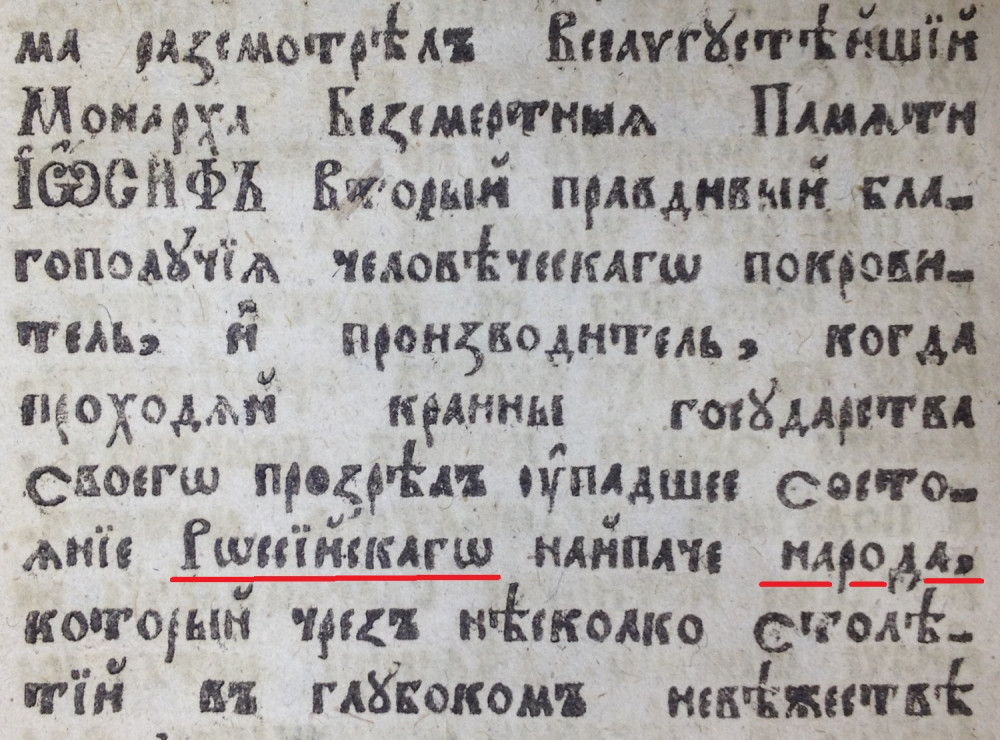 ма разсмотрѣлъ Всеаѵгꙋстѣйшїй
Монарха Безсмертныя Памѧти
ІѠ҆СИФЪ Вторый правдивый бла-
гополꙋ́чїѧ человѣческагѡ покрови-
тель, и҆ производитель, когда
проходѧй краины госꙋдарства
Своегѡ прозрѣлъ ᲂу҆падшее Состо-
ѧнїе Рѡссїйскагѡ найпаче народа,
который чрезъ нѣсколко Столѣ-
тїй въ глꙋбокомъ невѣжествѣ